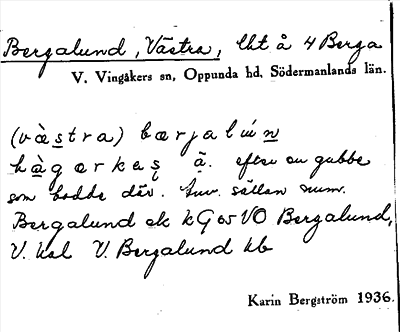 Bergalund, Västra, lht å 4 Berga
V. Vingåkers sn, Oppunda hd, Södermanlands län.
(västra) bærjalún
hàgærkas ä. efter en gubbe
som bodde där. sällan num.
Bergalund ek kG o VO Bergalund,
V. hsl V. Bergalund kb
Karin Bergström 1936.